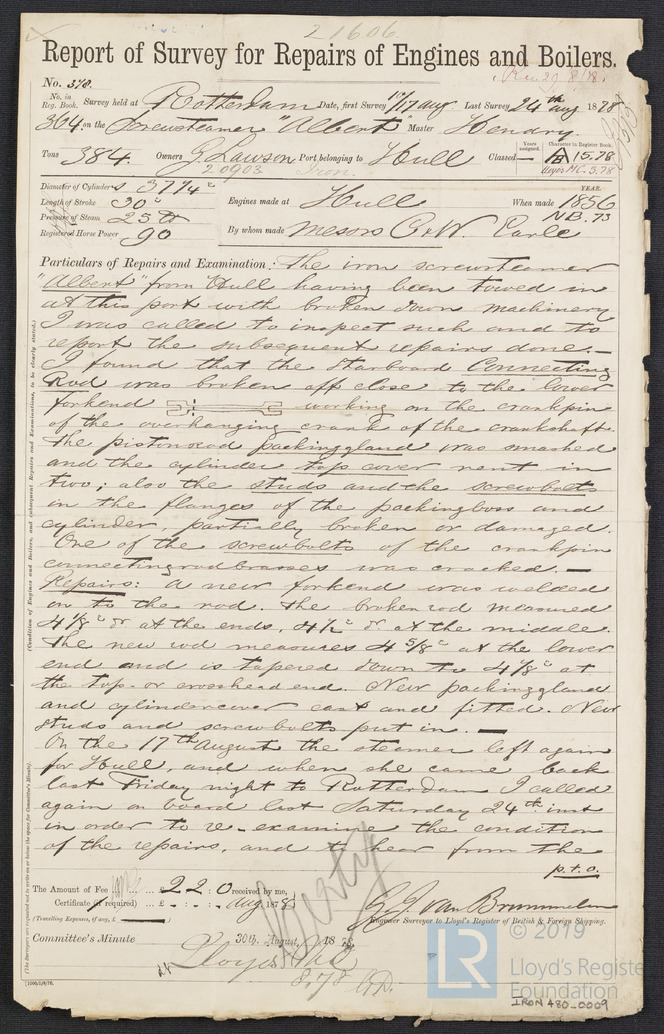 21606
Report of Survey for Repairs of Engines and Boilers.
No. 378.
No. in Reg. Book. Survey held at Rotterdam Date, first Survey 17 Aug Last Survey 24th Aug 1878
364 on the Screwsteamer "Albert" Master Hendry.
Tons 384. Owners G. Lawson Port belonging to Hull Classed — Years assigned. Character in Register Book. A 15.78
20903 Iron. Lloyds MC. 5.78
Diameter of Cylinders 37 1/4"
Length of Stroke 30" Engines made at Hull When made YEAR. 1856
Pressure of Steam 25 lb NB. 73
Registered Horse Power 90 By whom made Messrs C & W. Earle
Particulars of Repairs and Examination: The iron screwsteamer
"Albert" from Hull having been towed in
at this port with broken down machinery
I was called to inspect such and to
report the subsequent repairs done. —
I found that the starboard Connecting
Rod was broken off close to the lower
forkend working on the crankpin
of the overhanging crank of the crankshaft.
The pistonrod packinggland was smashed
and the cylinder top cover rent in
two; also the studs and the screwbolts
in the flanges of the packingboss and
cylinder, partially broken or damaged.
One of the screwbolts of the crankpin
connectingrodbrasses was cracked. —
Repairs: A new forkend was welded
on to the rod. The broken rod measured
4 1/8" dr at the ends, 4 1/2" dr at the middle.
The new rod measures 4 5/8" at the lower
end and is tapered down to 4 1/8" at
the top- or crosshead end. New packinggland
and cylindercover cast and fitted. New
studs and screwbolts put in. —
On the 17th August the steamer left again
for Hull, and when she came back
last Friday night to Rotterdam I called
again on board last Saturday 24th inst
in order to re-examine the condition
of the repairs, and to hear from the
p.t.o.
(Condition of Engines and Boilers, and subsequent Repairs and Examinations, to be clearly stated.)
(The Surveyors are requested not to write on or below the space for Committee's Minute).
The Amount of Fee ... £ 2 2 0 received by me,
Certificate (if required) ... £ - : - : - Aug. 1878
(Travelling Expenses, if any, £ )
G. J. van Brummelen
Engineer Surveyor to Lloyd's Register of British & Foreign Shipping.
Committee's Minute 30th August, 1878
Lloyds MC
8,78
[1000/5/6/78.
LR
© 2019
Lloyd's Registe
Foundation
IRON 480-0009